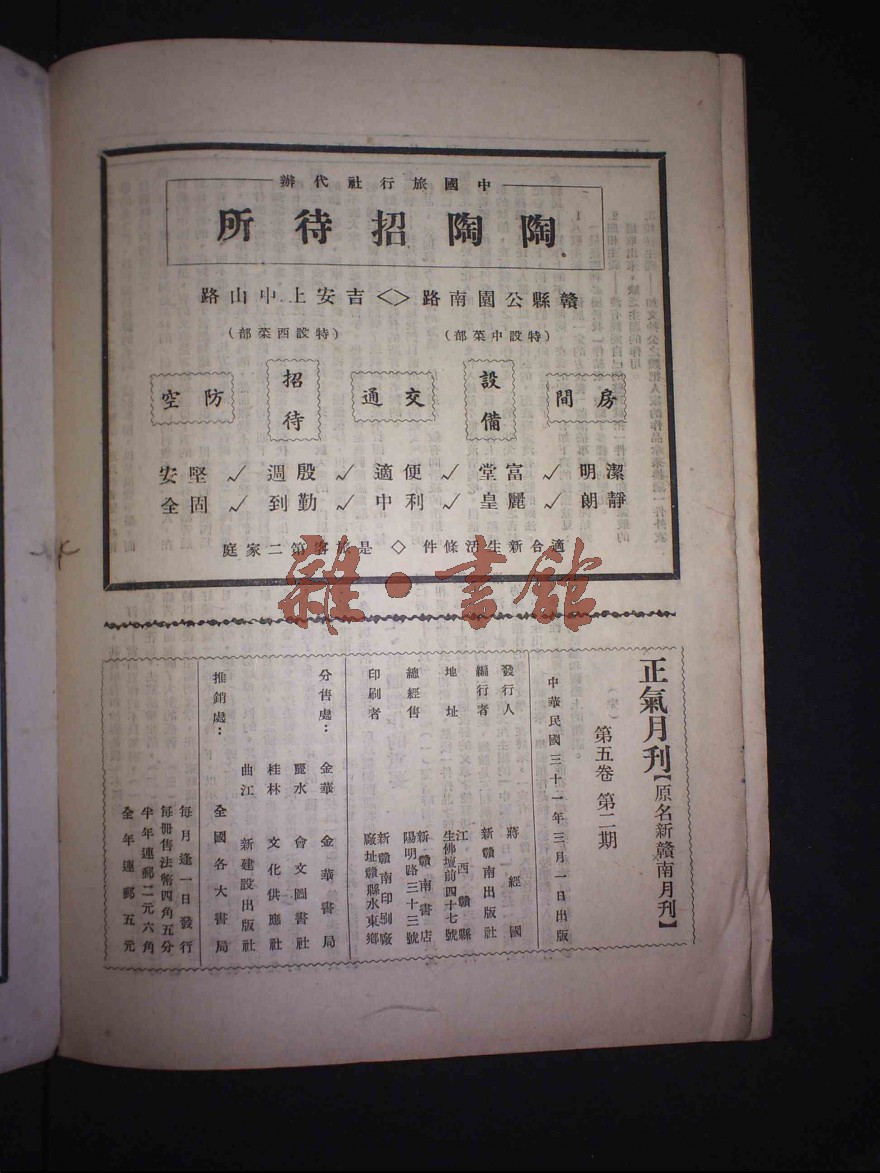 中國旅行社代辦
陶陶招待所
贛縣公園南路<>吉安上中山路
(特設中菜部)
(特設西菜部)
房間
設備
交通
招待
防空
潔明✓富堂✓便適✓殷週✓堅安
靜朗✓麗皇✓利中✓勤到✓固全
適合新生活條件◇是旅客第二家庭
雜·書館
正氣月刊【原名新贛南月刊】
第五卷 第二期
中華民國三十一年三月一日出版
發行人 蔣經國
編行者 新贛南出版社
地址 江西贛縣
生佛壇前四十七號
總經售 新贛南書店
陽明路三十三號
印刷者 新贛南印刷廠
廠址贛縣水東鄉
分售處：金華 金華書局
麗水 會文圖書社
桂林 文化供應社
曲江 新建設出版社
推銷處：全國各大書局
每月逢一日發行
每冊售法幣四角五分
半年連郵二元六角
全年連郵五元